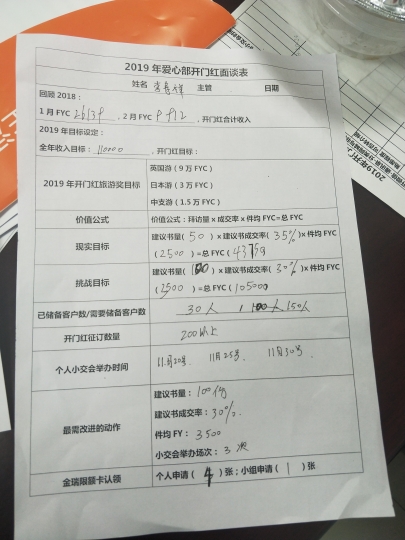 2019 年爱心部开门红面谈表
姓名 主管 日期
回顾 2018：
1 月 FYC 26139 ，2 月 FYC 9912 ，开门红合计收入
2019 年目标设定：
全年收入目标： 110000 ，开门红目标：
2019 年开门红旅游奖目标
英国游（9 万 FYC）
日本游（3 万 FYC）
中支游（1.5 万 FYC）
价值公式 价值公式：拜访量×成交率×件均 FYC=总 FYC
现实目标 建议书量( 50 ）×建议书成交率( 35% )×件均 FYC
( 2500 ) =总 FYC ( 43750
挑战目标 建议书量( 100 ）×建议书成交率( 30% )×件均 FYC
( 3500 ) =总 FYC ( 105000
已储备客户数/需要储备客户数 30人 / 150人
开门红征订数量 200以上
个人小交会举办时间 11月20号. 11月25号. 11月30号.
最需改进的动作
建议书量：100件
建议书成交率：30%.
件均 FY： 3500
小交会举办场次： 3 次
金瑞限额卡认领 个人申请（ 4 ）张；小组申请（ 1 ）张